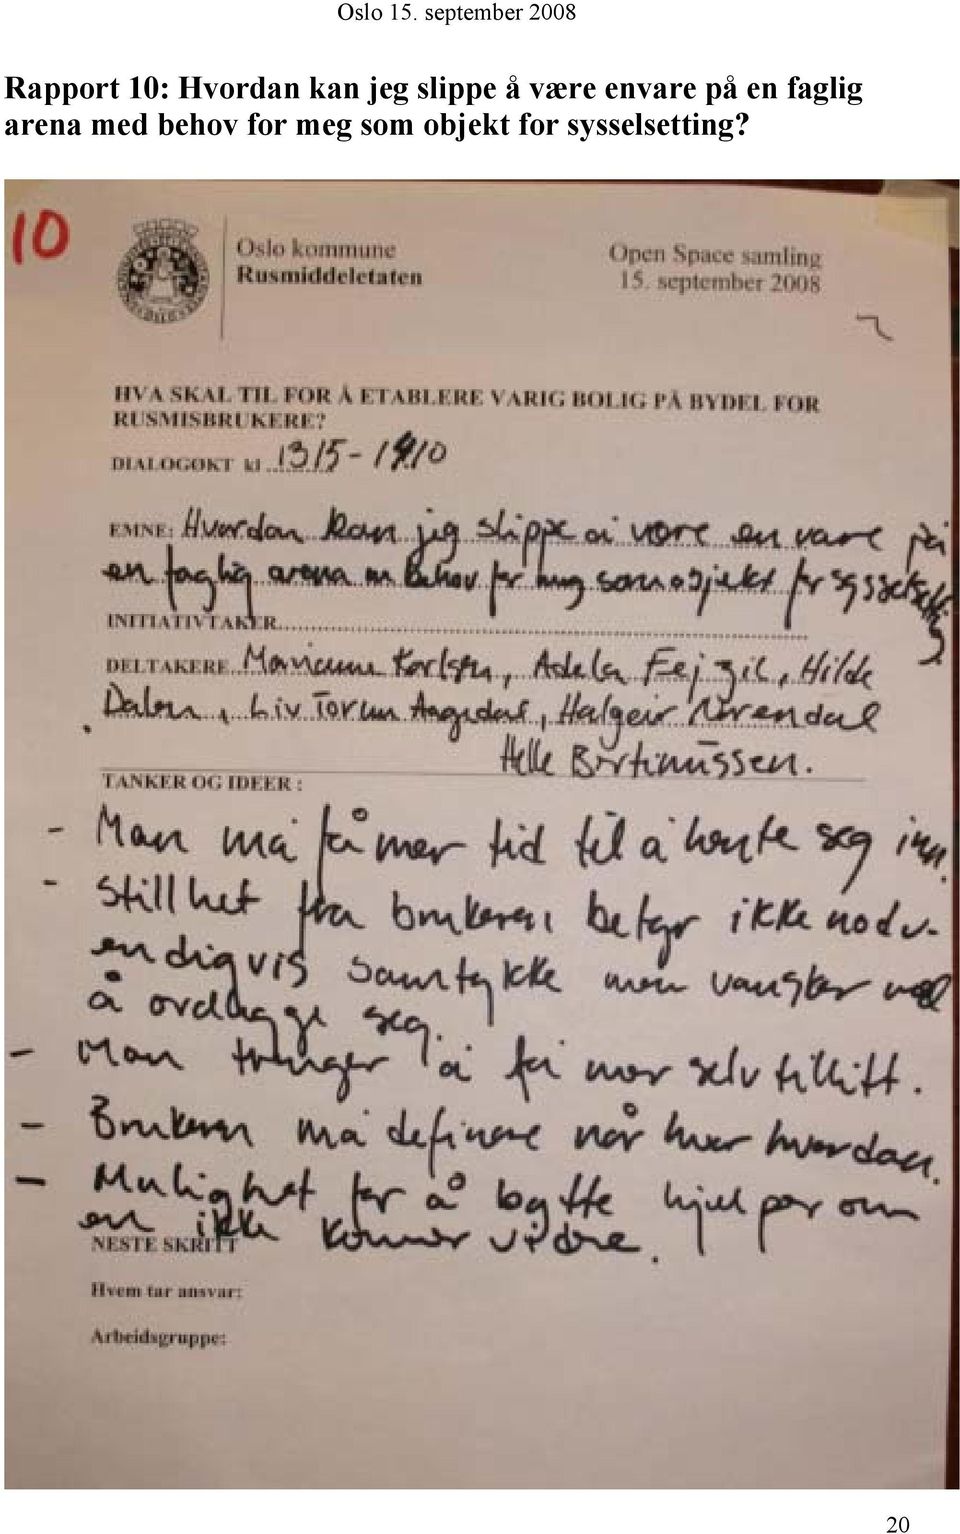 Oslo 15. september 2008
Rapport 10: Hvordan kan jeg slippe å være envare på en faglig
arena med behov for meg som objekt for sysselsetting?
10
Oslo kommune
Rusmiddeletaten
Open Space samling
15. september 2008
HVA SKAL TIL FOR Å ETABLERE VARIG BOLIG PÅ BYDEL FOR
RUSMISBRUKERE?
DIALOGØKT kl 1315 - 1410
EMNE: Hvordan kan jeg slippe å være en vare på
en faglig arena m behov for meg som objekt for sysselsetting
INITIATIVTAKER
DELTAKERE Marianne Karlsen, Adela Fejzic, Hilde
Dalen, Liv Torunn, Halgeir
Helle
TANKER OG IDEER :
- Man må få mer tid til å hente seg inn.
- Stillhet fra brukeren betyr ikke nødv-
endigvis samtykke men vansker med
å ordlegge seg.
- Man trenger å få mer selvtillitt.
- Brukeren må definere når hvor hvordan.
- Mulighet for å bytte hjelper om
en ikke kommer videre.
NESTE SKRITT
Hvem tar ansvar:
Arbeidsgruppe:
20